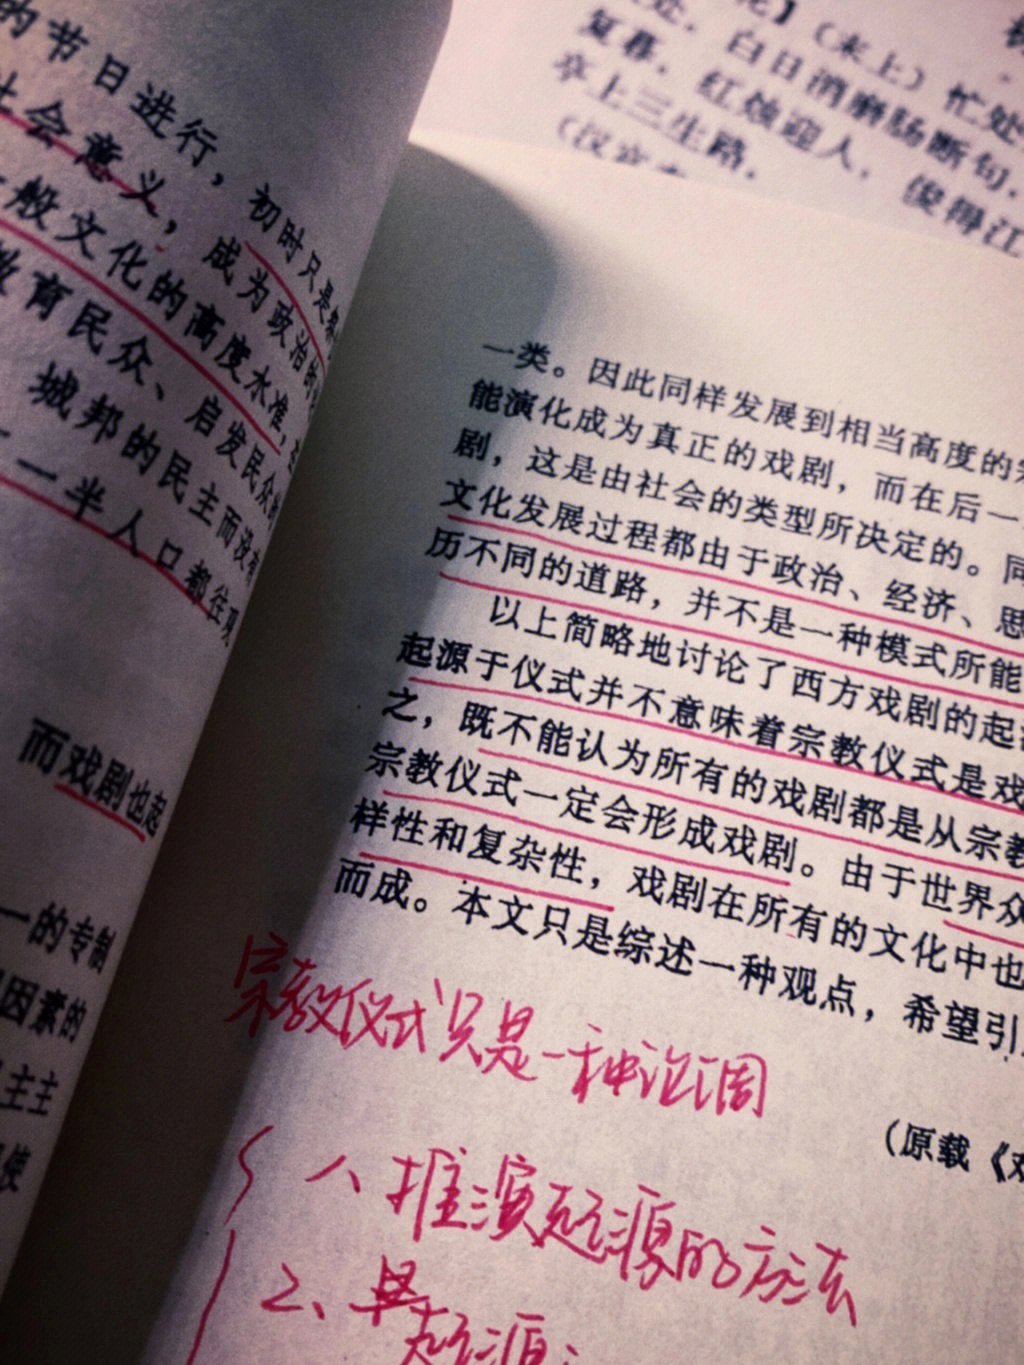 的节日进行，初时只是
社会意义，成为政治的
般文化的高度水准，
教育民众、启发民众
城邦的民主而没有
一半人口都往观
而戏剧也起
一的专制
因素的
主主
使
（末上）忙处
处．白日消磨肠断句．
复暮．红烛迎人，俊得江
亭上三生路．
一类。因此同样发展到相当高度的宗
能演化成为真正的戏剧，而在后一
剧，这是由社会的类型所决定的。同
文化发展过程都由于政治、经济、思
历不同的道路，并不是一种模式所能
以上简略地讨论了西方戏剧的起
起源于仪式并不意味着宗教仪式是戏
之，既不能认为所有的戏剧都是从宗教
宗教仪式一定会形成戏剧。由于世界众
样性和复杂性，戏剧在所有的文化中也
而成。本文只是综述一种观点，希望引
宗教仪式只是一种论调
（原载《戏
1、推演起源的方法
2、
起源